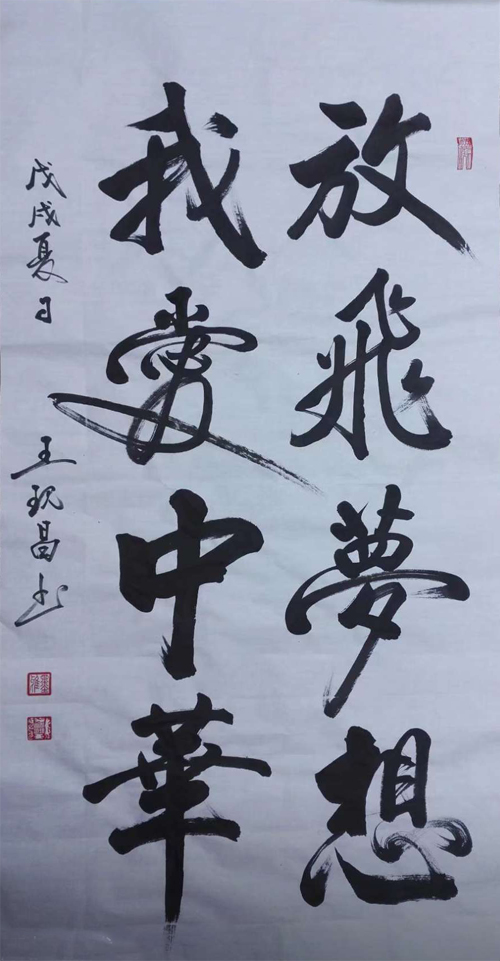 放飛夢想
我愛中華
戊戌夏月
王现昌书